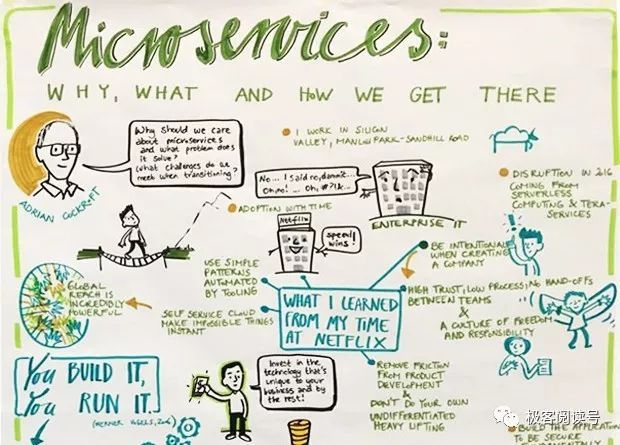 Microservices:
WHY, WHAT AND HOW WE GET THERE
Why should we care
about microservices
and what problem does
it solve?
What challenges do we
meet when transitioning?
ADRIAN COCKROFT
I WORK IN SILICON
VALLEY, MANLOW PARK-SANDHILL ROAD
No... I said no, damnit...
Oh, no! ... Oh, #?!&...
ENTERPRISE IT
DISRUPTION IN 2016
COMING FROM
SERVERLESS
COMPUTING & TERA-
SERVICES
ADOPTION WITH TIME
Netflix
speed
wins!
BE INTENTIONAL
WHEN CREATING
A COMPANY
USE SIMPLE
PATTERNS
AUTOMATED
BY TOOLING
WHAT I LEARNED
FROM MY TIME
AT NETFLIX
HIGH TRUST, LOW PROCESS, NO HAND-OFFS
BETWEEN TEAMS
&
A CULTURE OF FREEDOM
AND RESPONSIBILITY
GLOBAL
REACH IS
INCREDIBLY
POWERFUL
SELF SERVICE CLOUD
MAKE IMPOSSIBLE THINGS
INSTANT
You BUILD IT,
You RUN IT.
(WERNER VOGELS, 2006)
Invest in the
technology that's
unique to your
business and by
the rest!
REMOVE FRICTION
FROM PRODUCT
DEVELOPMENT
&
DON'T DO YOUR OWN
UNDIFFERENTIATED
HEAVY LIFTING
BUILD THE APPLICATION
TO BE SECURE
极客阅读号